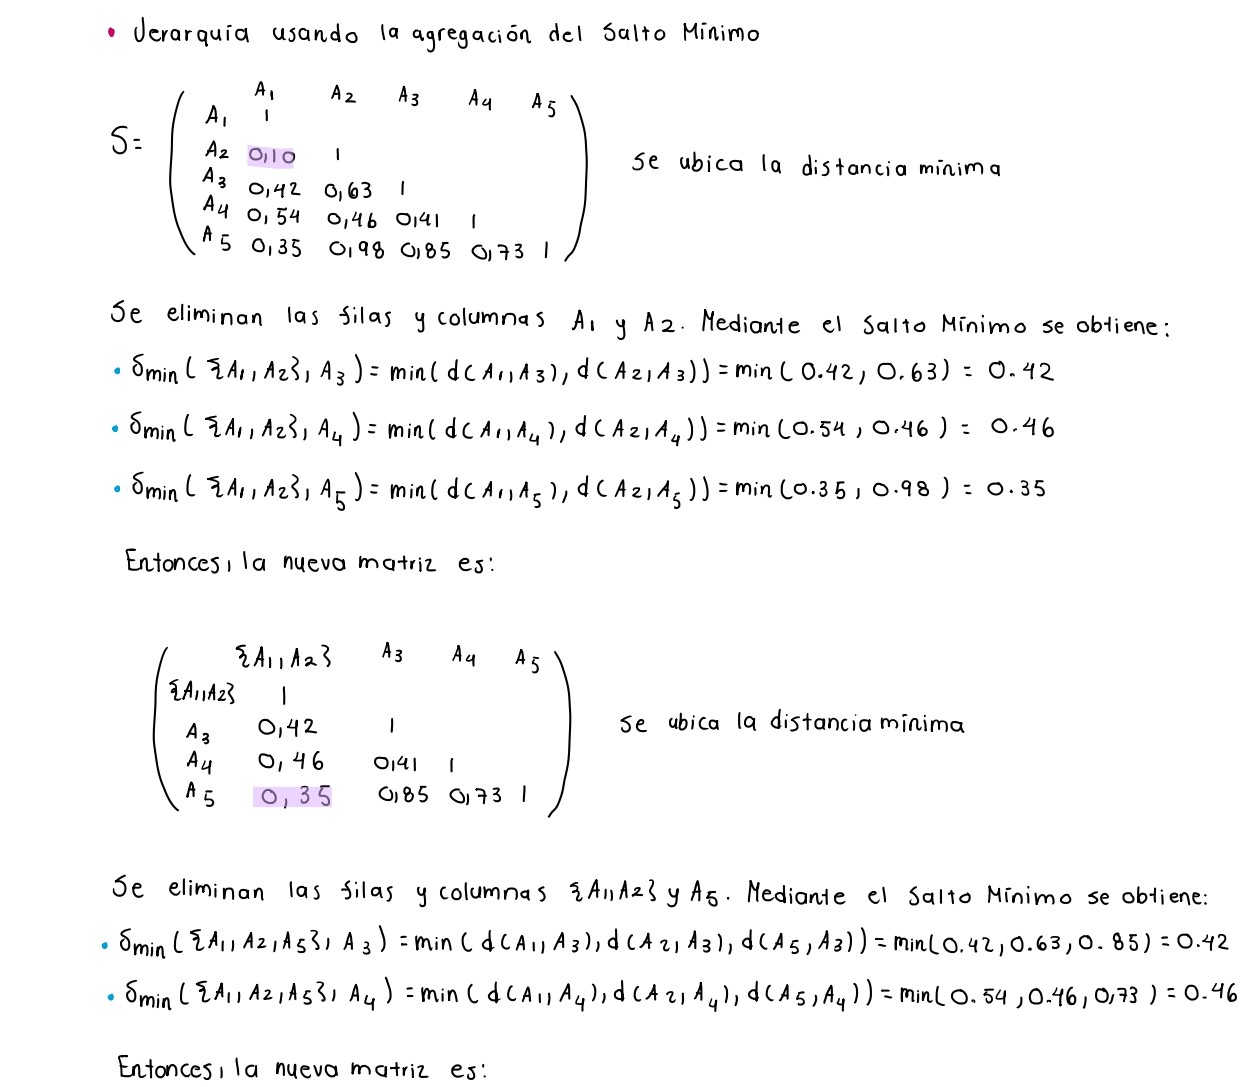 • Jerarquía usando la agregación del Salto Mínimo
A1 A2 A3 A4 A5
A1 1
S=
A2 0,10 1
se ubica la distancia mínima
A3 0,42 0,63 1
A4 0,54 0,46 0,41 1
A5 0,35 0,98 0,85 0,73 1
Se eliminan las filas y columnas A1 y A2. Mediante el Salto Mínimo se obtiene:
• δmin({A1, A2}, A3) = min(d(A1, A3), d(A2, A3)) = min(0.42, 0.63) = 0.42
• δmin({A1, A2}, A4) = min(d(A1, A4), d(A2, A4)) = min(0.54, 0.46) = 0.46
• δmin({A1, A2}, A5) = min(d(A1, A5), d(A2, A5)) = min(0.35, 0.98) = 0.35
Entonces, la nueva matriz es:
{A1, A2} A3 A4 A5
{A1, A2} 1
A3 0,42 1
se ubica la distancia mínima
A4 0,46 0,41 1
A5 0,35 0,85 0,73 1
Se eliminan las filas y columnas {A1, A2} y A5. Mediante el Salto Mínimo se obtiene:
• δmin({A1, A2, A5}, A3) = min(d(A1, A3), d(A2, A3), d(A5, A3)) = min(0.42, 0.63, 0.85) = 0.42
• δmin({A1, A2, A5}, A4) = min(d(A1, A4), d(A2, A4), d(A5, A4)) = min(0.54, 0.46, 0,73) = 0.46
Entonces, la nueva matriz es: